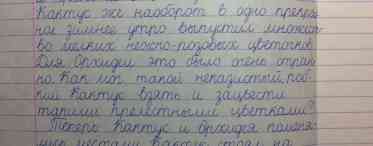 Кактус же наоборот в одно прекрас-
ное зимнее утро выпустил множест-
во мелких нежно-розовых цветочков.
Для Орхидеи это было очень стран-
но. Как мог такой неказистый,
кий Кактус взять и зацвести
такими прелестными цветками?
Теперь Кактус и Орхидея поменя-
лись местами. Кактус стоял на